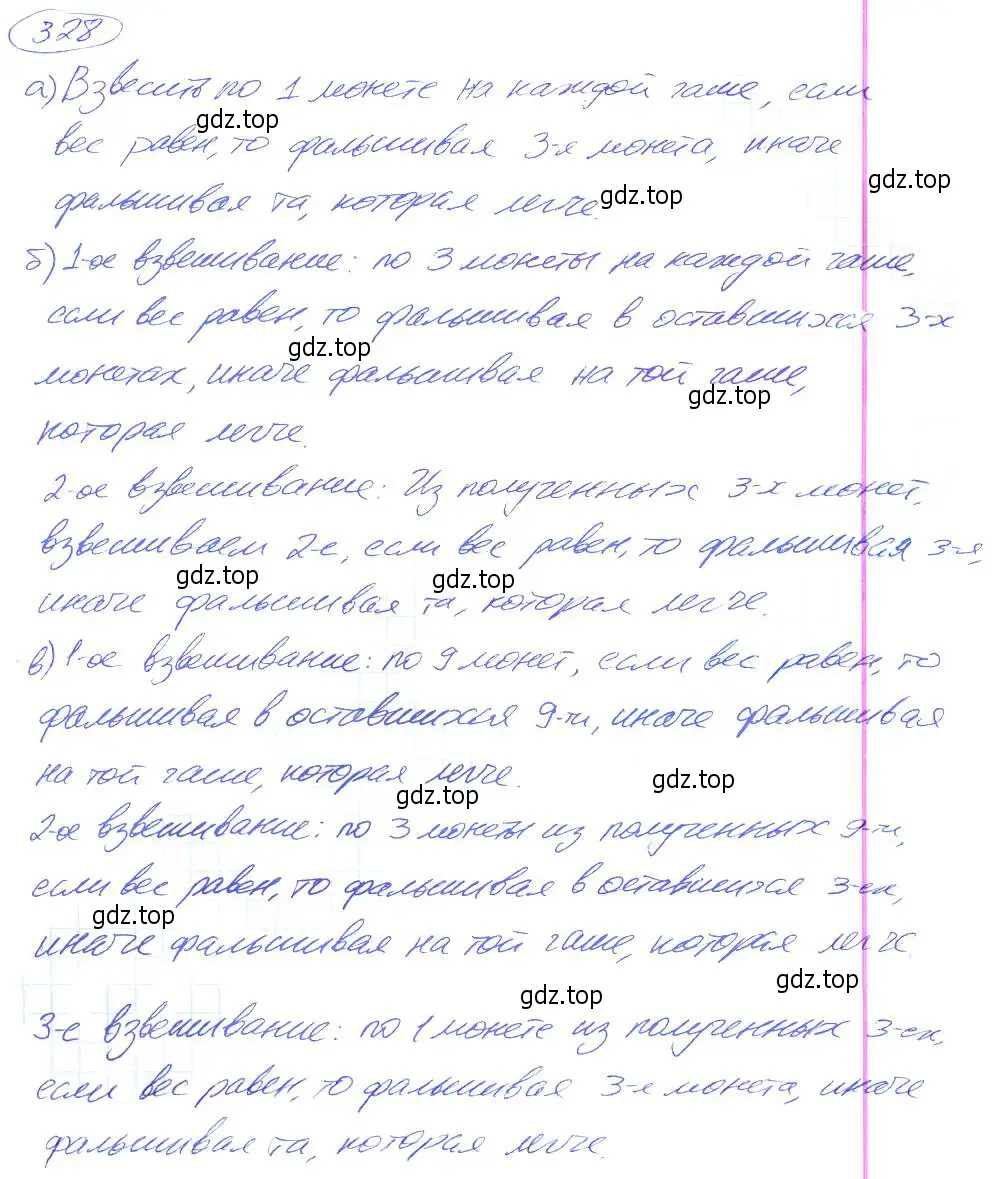 328
а) Взвесить по 1 монете на каждой чаше, если
gdz.top
вес равен, то фальшивая 3-я монета, иначе
gdz.top
фальшивая та, которая легче.
gdz.top
б) 1-ое взвешивание: по 3 монеты на каждой чаше,
если вес равен, то фальшивая в оставшихся 3-х
gdz.top
монетах, иначе фальшивая на той чаше,
gdz.top
которая легче.
2-ое взвешивание: Из полученных 3-х монет,
взвешиваем 2-е, если вес равен, то фальшивая 3-я,
gdz.top gdz.top
иначе фальшивая та, которая легче.
в) 1-ое взвешивание: по 9 монет, если вес равен, то
фальшивая в оставшихся 9-ти, иначе фальшивая
на той чаше, которая легче.
gdz.top
gdz.top
2-ое взвешивание: по 3 монеты из полученных 9-ти,
если вес равен, то фальшивая в оставшихся 3-ех,
gdz.top
иначе фальшивая на той чаше, которая легче.
gdz.top
gdz.top
3-е взвешивание: по 1 монете из полученных 3-ех,
если вес равен, то фальшивая 3-я монета, иначе
фальшивая та, которая легче.